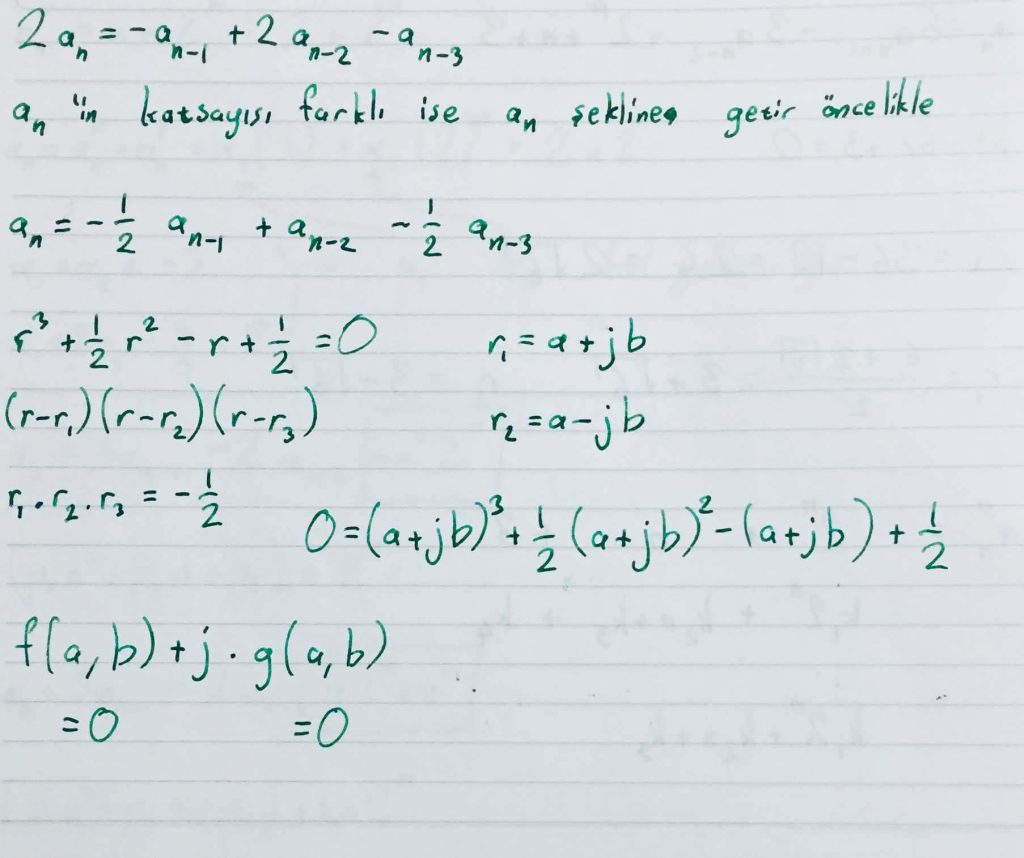 2aₙ = -aₙ₋₁ + 2aₙ₋₂ - aₙ₋₃
aₙ "in katsayısı farklı ise aₙ şekline getir öncelikle
aₙ = -1/2 aₙ₋₁ + aₙ₋₂ - 1/2 aₙ₋₃
r³ + 1/2 r² - r + 1/2 = 0 r₁ = a + jb
(r-r₁)(r-r₂)(r-r₃) r₂ = a - jb
r₁.r₂.r₃ = -1/2
0 = (a+jb)³ + 1/2 (a+jb)² - (a+jb) + 1/2
f(a,b) + j.g(a,b)
=0 =0